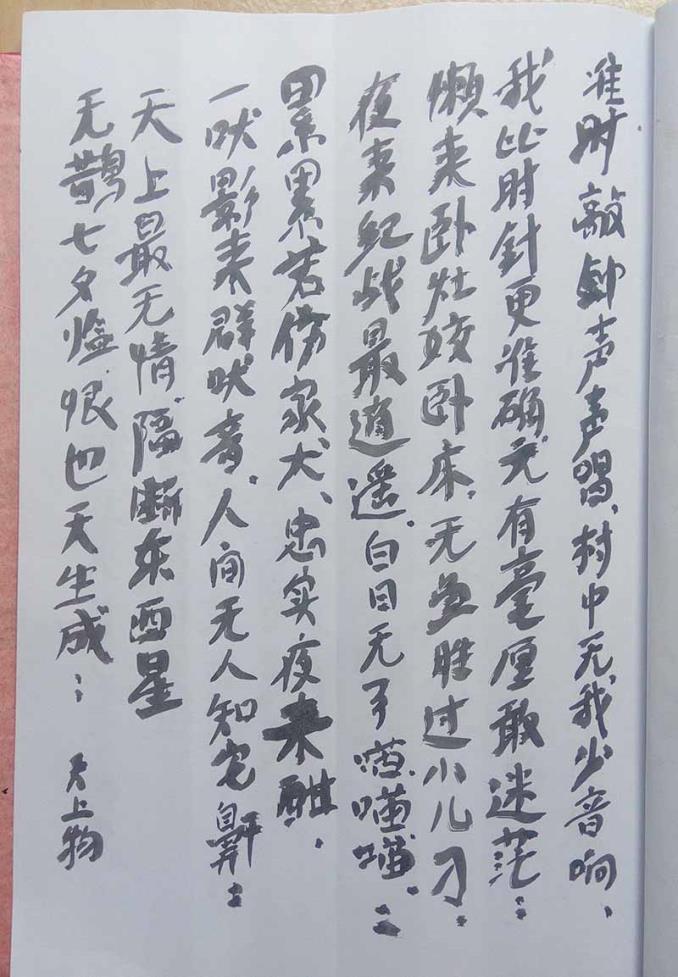 准时敲钟声声唱、村中无我少音响、
我比时针更准确、无有毫厘敢迷茫：
懒来卧灶姣卧床、无益胜过小儿刁．
夜来纪战最逍遥、白日无事喵喵．：
累累若伤家犬、忠实夜来酣．
一吠影来群吠音、人间无人知它鼾：
天上最无情隔断东西星
无鹊七夕恨也天生成：
天上物